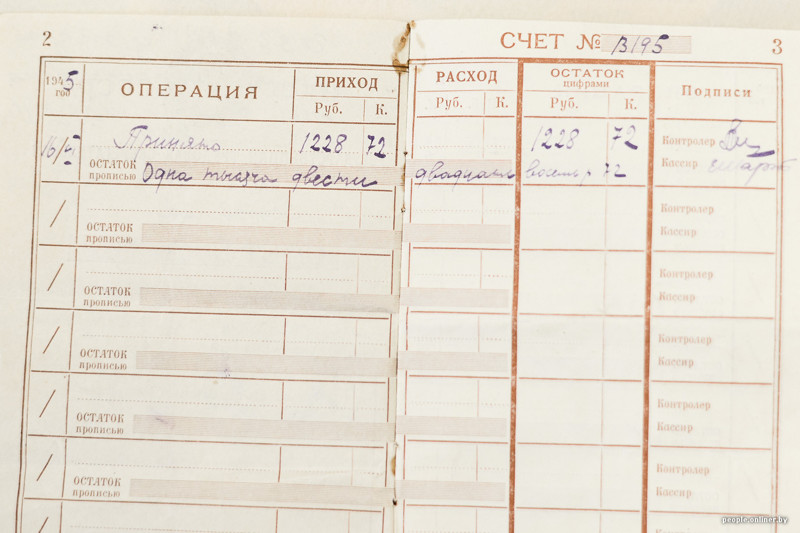 2
СЧЕТ № В195
3
1945 год ОПЕРАЦИЯ ПРИХОД РАСХОД ОСТАТОК цифрами Подписи
Руб. К. Руб. К. Руб. К.
16/VI Принято 1228 72 1228 72 Контролер
ОСТАТОК прописью Одна тысяча двести двадцать восемь р 72 Кассир
/ Контролер
ОСТАТОК прописью Кассир
/ Контролер
ОСТАТОК прописью Кассир
/ Контролер
ОСТАТОК прописью Кассир
/ Контролер
ОСТАТОК прописью Кассир
/ Контролер
ОСТАТОК прописью Кассир
/
people.onliner.by